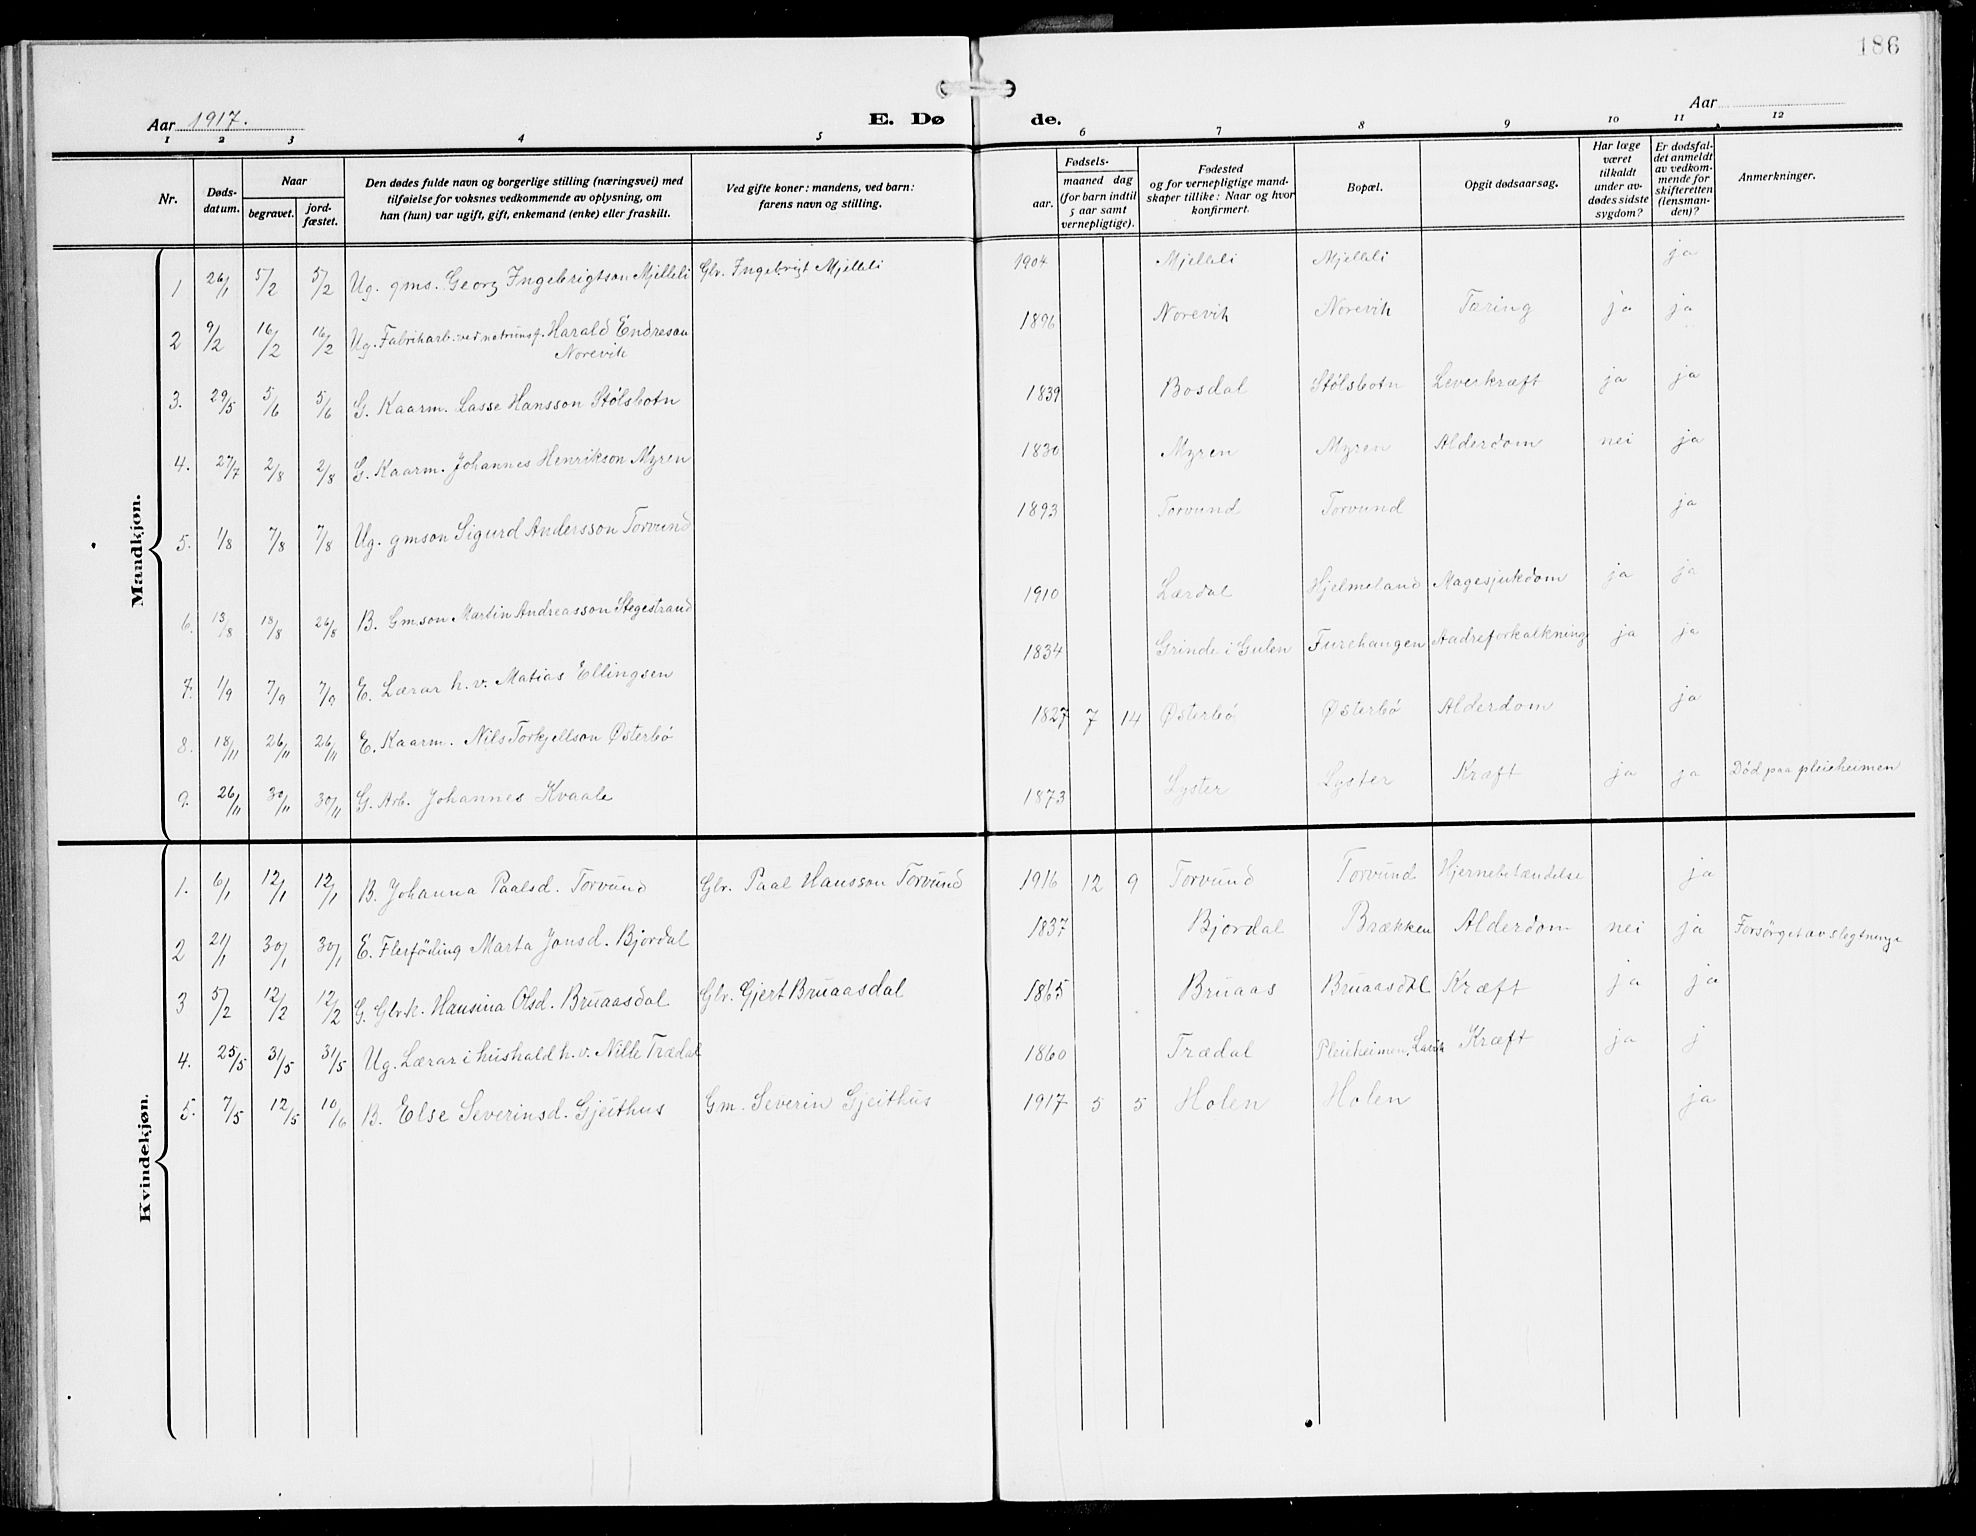 186
Aar 1917.
E. Dø
de.
Aar
1 2 3 4 5 6 7 8 9 10 11 12
Nr.
Døds-
datum.
Naar
begravet.
jord-
fæstet.
Den dødes fulde navn og borgerlige stilling (næringsvei) med
tilføielse for voksnes vedkommende av oplysning, om
han (hun) var ugift, gift, enkemand (enke) eller fraskilt.
Ved gifte koner: mandens, ved barn:
farens navn og stilling.
Fødsels-
aar.
maaned dag
(for barn indtil
5 aar samt
vernepligtige).
Fødested
og for vernepligtige mand-
skaper tillike: Naar og hvor
konfirmert.
Bopæl.
Opgit dødsaarsag.
Har læge
været
tilkaldt
under av-
dødes sidste
sygdom?
Er dødsfal-
det anmeldt
av vedkom-
mende for
skifteretten
(lensman-
den)?
Anmerkninger.
Mandkjøn.
1 26/1 5/2 5/2 Ug. gms. Georg Ingebrigtson Mjelleli Gbr. Ingebrigt Mjelleli 1904 Mjelleli Mjelleli ja
2 9/2 16/2 16/2 Ug. Fabrikarb. ved Harald Endreson
Norevik 1896 Norevik Norevik Tæring ja ja
3. 29/5 5/6 5/6 G. Kaarm. Lasse Hansson Stølsbotn 1839 Bosdal Stølsbotn Leverkræft ja ja
4. 27/7 2/8 2/8 G. Kaarm. Johannes Henrikson Myren 1830 Myren Myren Alderdom nei ja
5. 1/8 7/8 7/8 Ug. gmson Sigurd Andersson Torvund 1893 Torvund Torvund ja
6. 13/8 18/8 26/8 B. Gmson Martin Andreasson Stegestrand 1910 Lærdal Hjelmeland Magesjukdom ja ja
7. 1/9 7/9 7/9 E. Lærar h. v. Matias Ellingsen 1834 Grinde i Gulen Furehaugen Aadreforkalkning ja ja
8. 18/11 26/11 26/11 E. Kaarm. Nils Torkjellson Østerbø 1827 7 14 Østerbø Østerbø Alderdom ja
9. 26/11 30/11 30/11 G. Arb. Johannes Kvaale 1873 Lyster Lyster Kræft ja ja Død paa pleieheimen
Kvindekjøn.
1. 6/1 12/1 12/1 B. Johanna Paalsd. Torvund Gbr. Paal Hansson Torvund 1916 12 9 Torvund Torvund Hjernebetændelse ja
2 21/1 30/1 30/1 E. Flesføding Marta Jonsd. Bjordal 1837 Bjordal Brækken Alderdom nei ja Forsørget av slegtninge
3 5/2 12/2 12/2 G. Gbrk. Hansina Olsd. Bruaasdal Gbr. Gjert Bruaasdal 1865 Bruaas Bruaasdal Kræft ja ja
4. 25/5 31/5 31/5 Ug. Lærar i hushald h. v. Nille Trædal 1860 Trædal Pleieheimen, Lavik Kræft ja j
5. 7/5 12/5 10/6 B. Else Severinsd. Gjeithus Gm. Severin Gjeithus 1917 5 5 Holen Holen ja